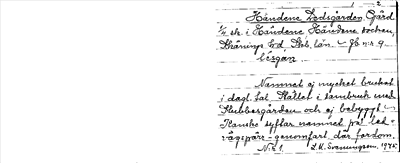 Händene Ledsgården Gård
1/2 sk. i Händene Händene socken,
Skånings hd. Skb. län. - Jb n:r 9
Namnet ej mycket brukat
i dagl. tal. Stället i sambruk med
Klubbergården och ej bebyggt. -
Kanske syftar namnet på led =
vägspår - genomfart där fordom.
N:r 1. S. K. Svenningson. 1945